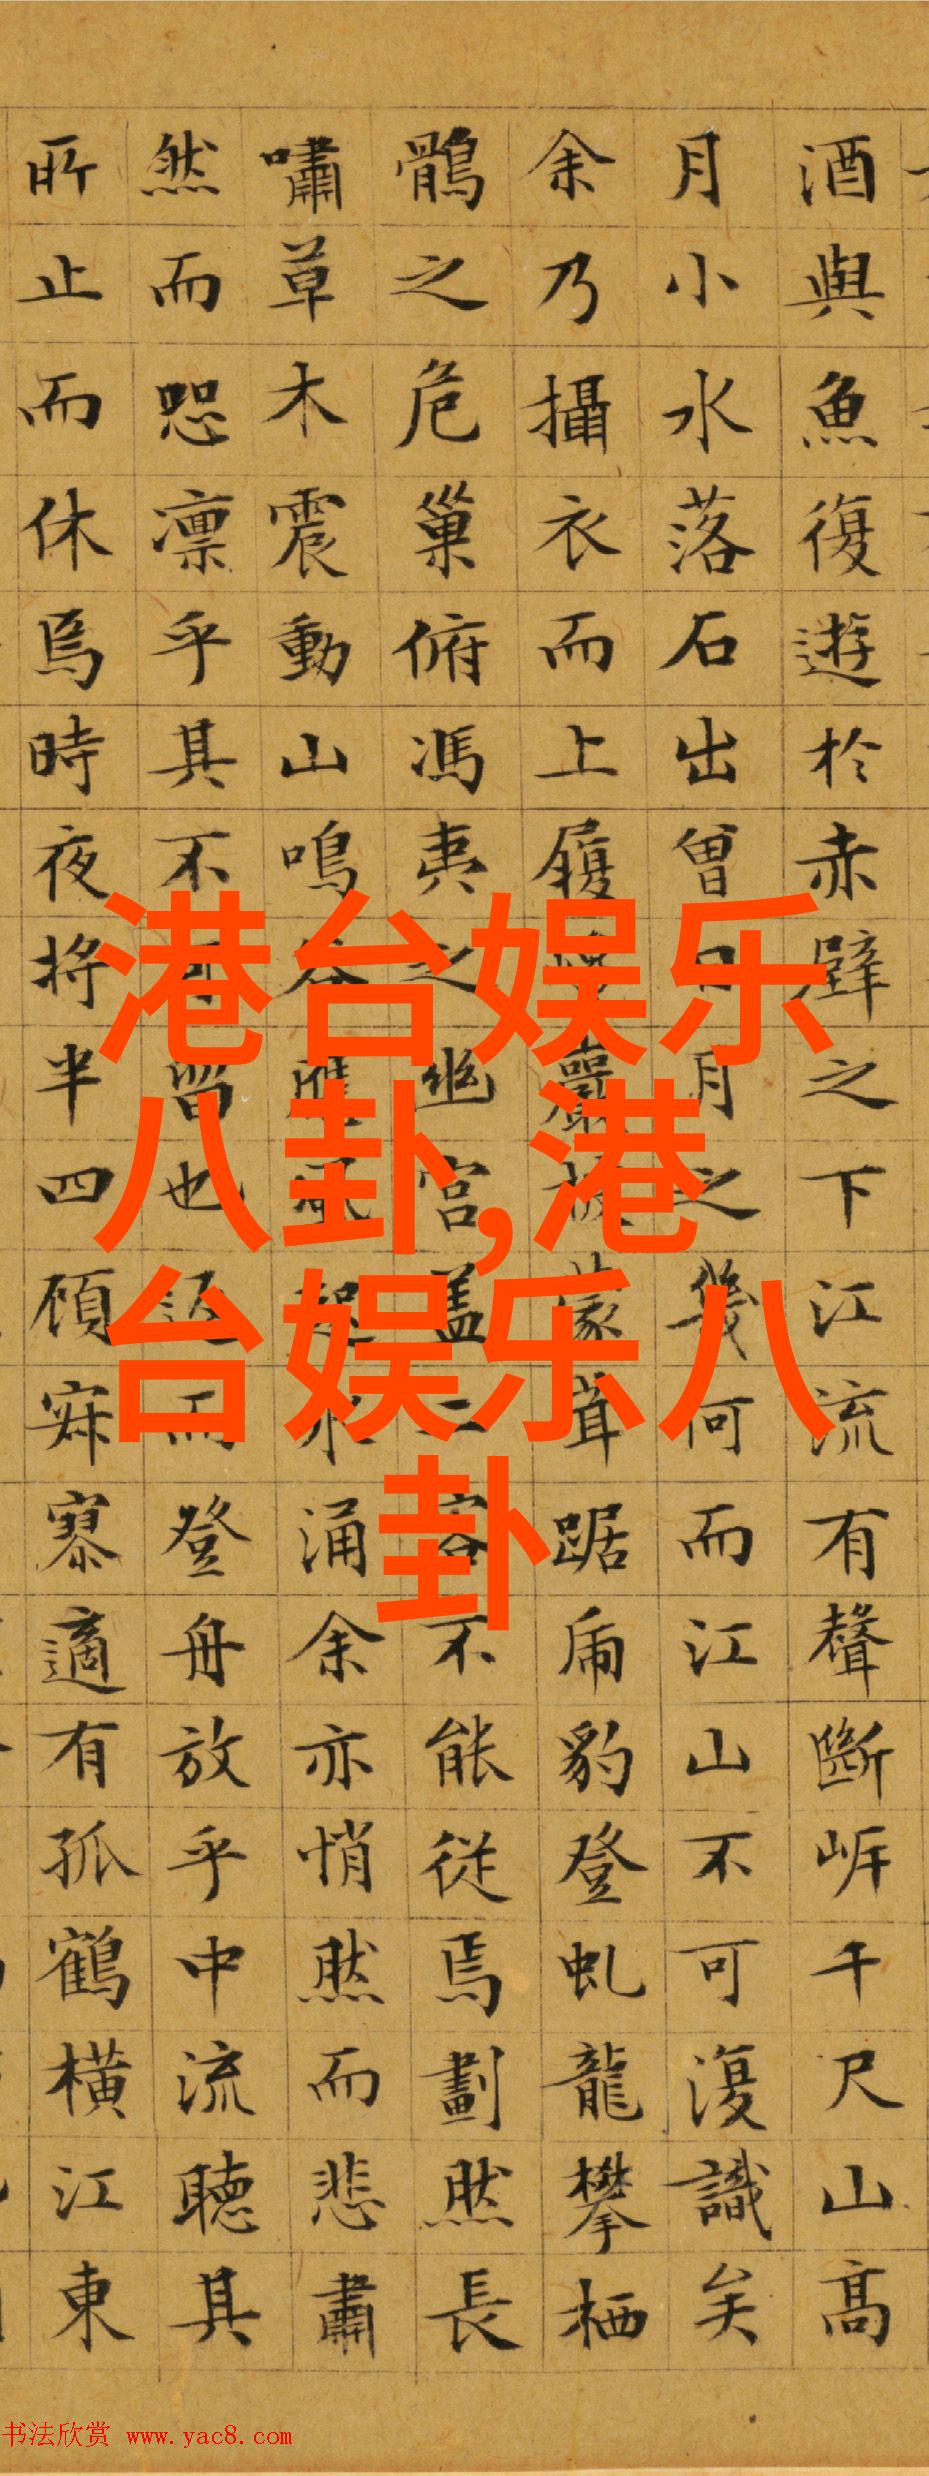 酒與魚復遊於赤壁之下江流有聲斷岸千尺山高
月小水落石出曾日月之幾何而江山不可復識矣
余乃攝衣而上履巉巖披蒙茸踞虎豹登虬龍攀栖
鶻之危巢俯馮夷之幽宮蓋二客不能從焉劃然長
嘯草木震動山鳴谷應風起水涌余亦悄然而悲肅
然而恐凜乎其不可留也返而登舟放乎中流聽其
所止而休焉時夜將半四顧寂寥適有孤鶴橫江東
港台娱乐
八卦,港
台娱乐八
卦
书法欣赏 www.yac8.com